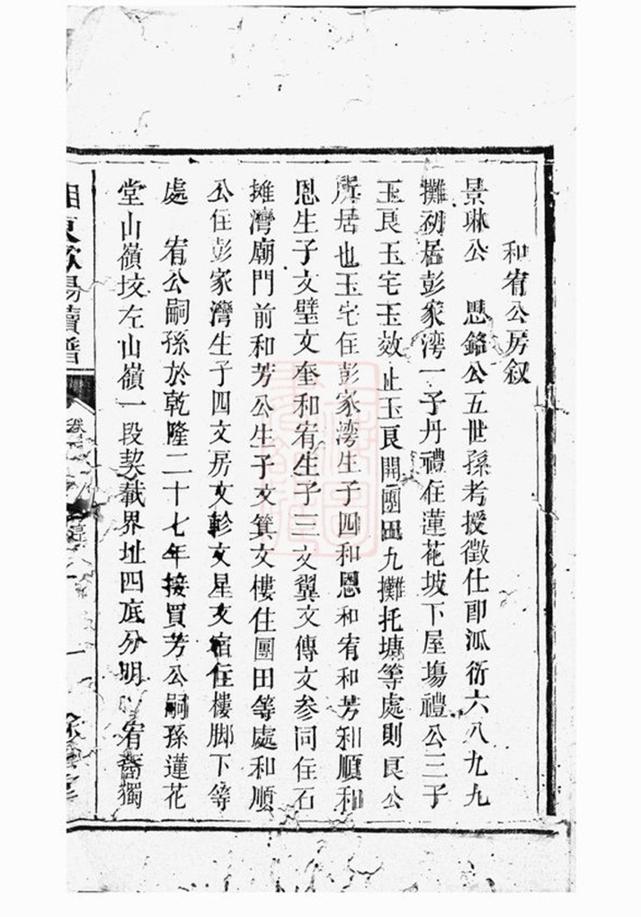 和宥公房叙
景琳公　愳銘公五世孫考授徵仕郎派衍六八九九
攤初居彭家湾一子丹禮住蓮花坡下屋塲禮公三子
玉良玉宅玉效止玉良開團田九攤托塘等處則良公
所居也玉宅住彭家湾生子四和恩和宥和芳和順和
恩生子文璧文奎和宥生子三文翼文傳文参同住石
摊灣廟門前和芳公生子文箕文樓住團田等處和順
公住彭家灣生子四文房文軫文星文宿住樓脚下等
處　宥公嗣孫於乾隆二十七年接買芳公嗣孫蓮花
堂山嶺坟左山嶺一段契載界址四底分明　宥裔獨
湘東歐陽續譜